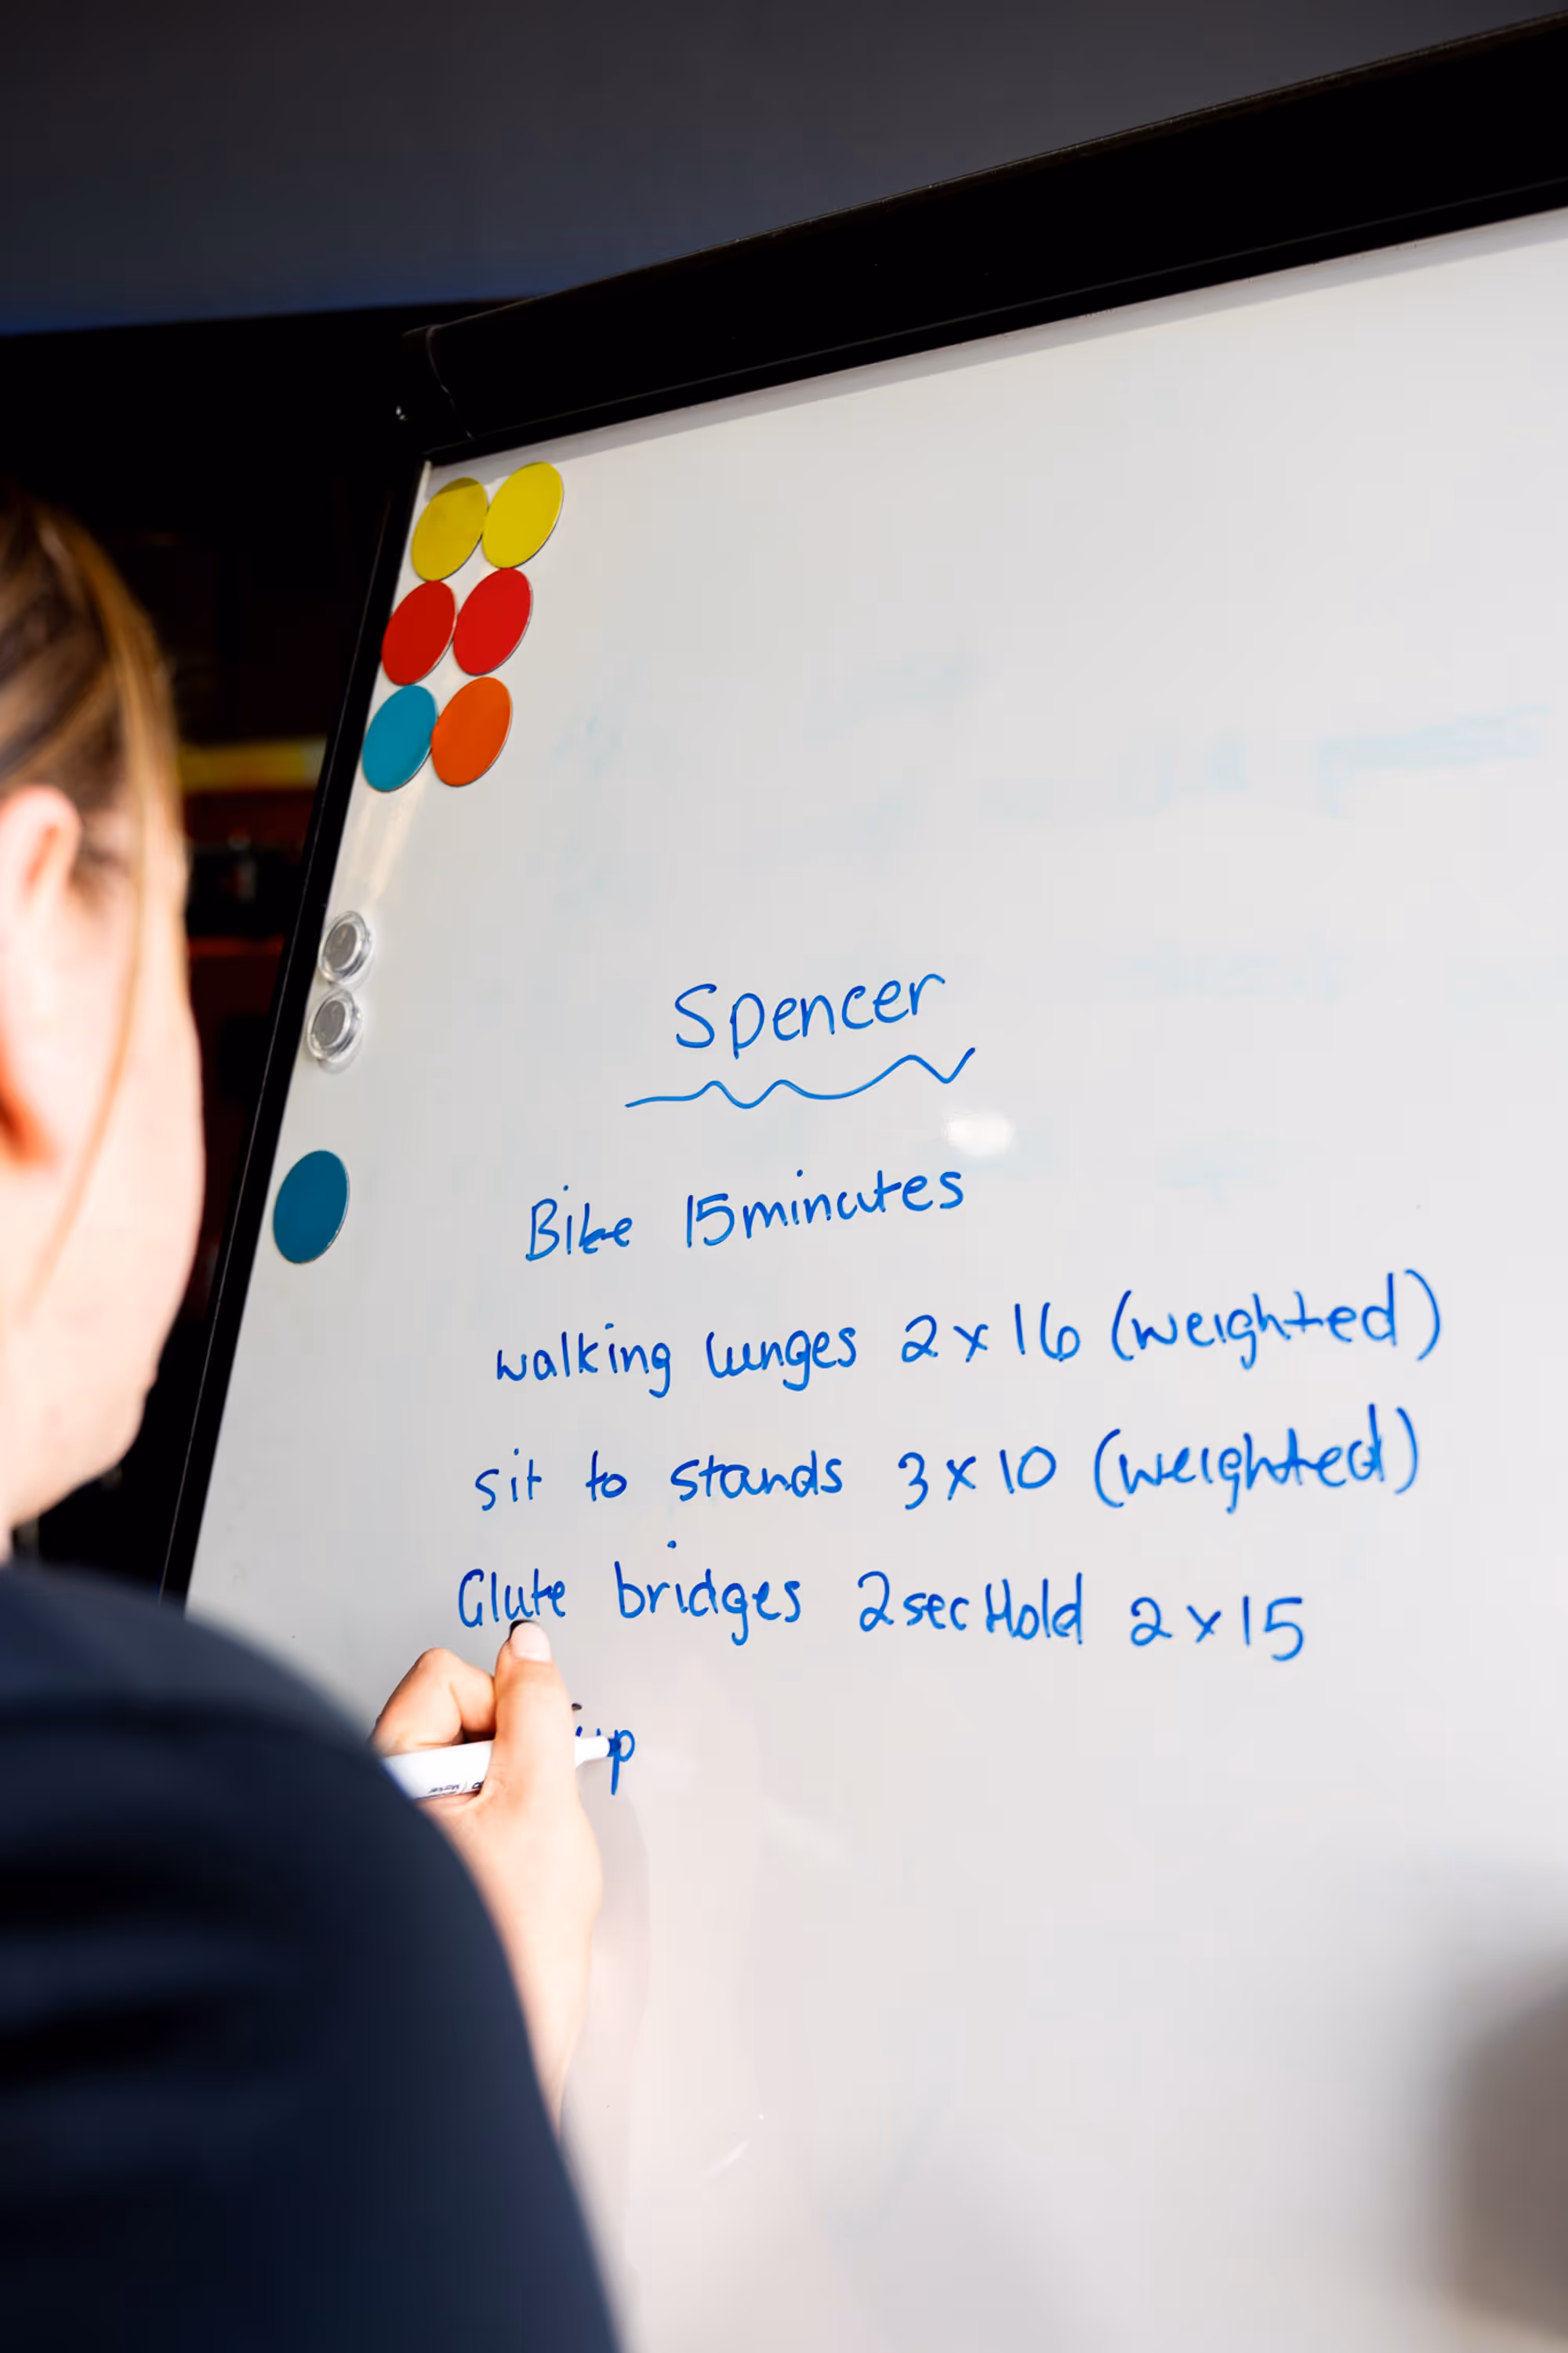 Spencer
Bike 15minutes
walking lunges 2 x 16 (weighted)
sit to stands 3 x 10 (weighted)
Glute bridges 2sec Hold 2 x 15